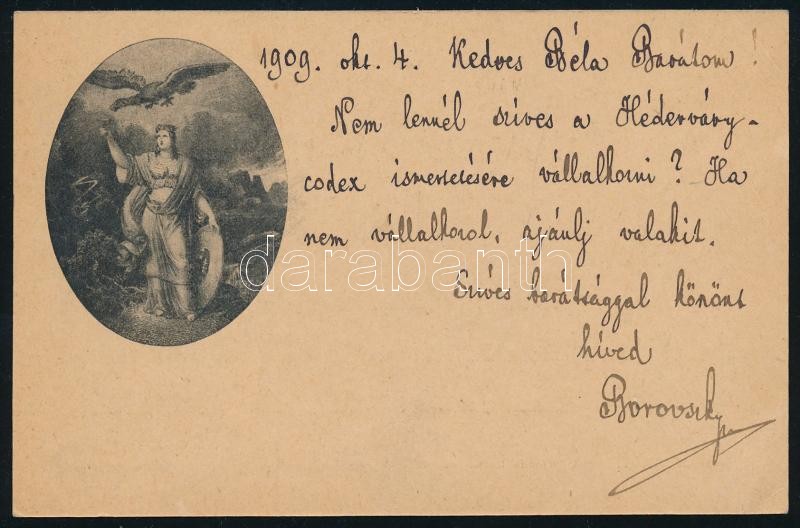 1909. okt. 4. Kedves Béla Barátom!
Nem lennél szíves a Héderváry-
codex ismertetésére vállalkozni? Ha
nem vállalkozol, ajánlj valakit.
darabanth
Szíves barátsággal köszönt
híved
Borovszky